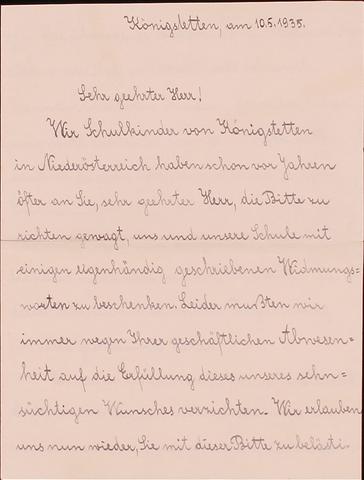 Königstetten, am 10.5.1935.
Sehr geehrter Herr!
Wir Schulkinder von Königstetten
in Niederösterreich haben schon vor Jahren
öfter an Sie, sehr geehrter Herr, die Bitte zu
richten gewagt, uns und unsere Schule mit
einigen eigenhändig geschriebenen Widmungs=
worten zu beschenken. Leider mußten wir
immer wegen Ihrer geschäftlichen Abwesen=
heit auf die Erfüllung dieses unseres sehn=
süchtigen Wunsches verzichten. Wir erlauben
uns nun wieder, Sie mit dieser Bitte zu belästi-